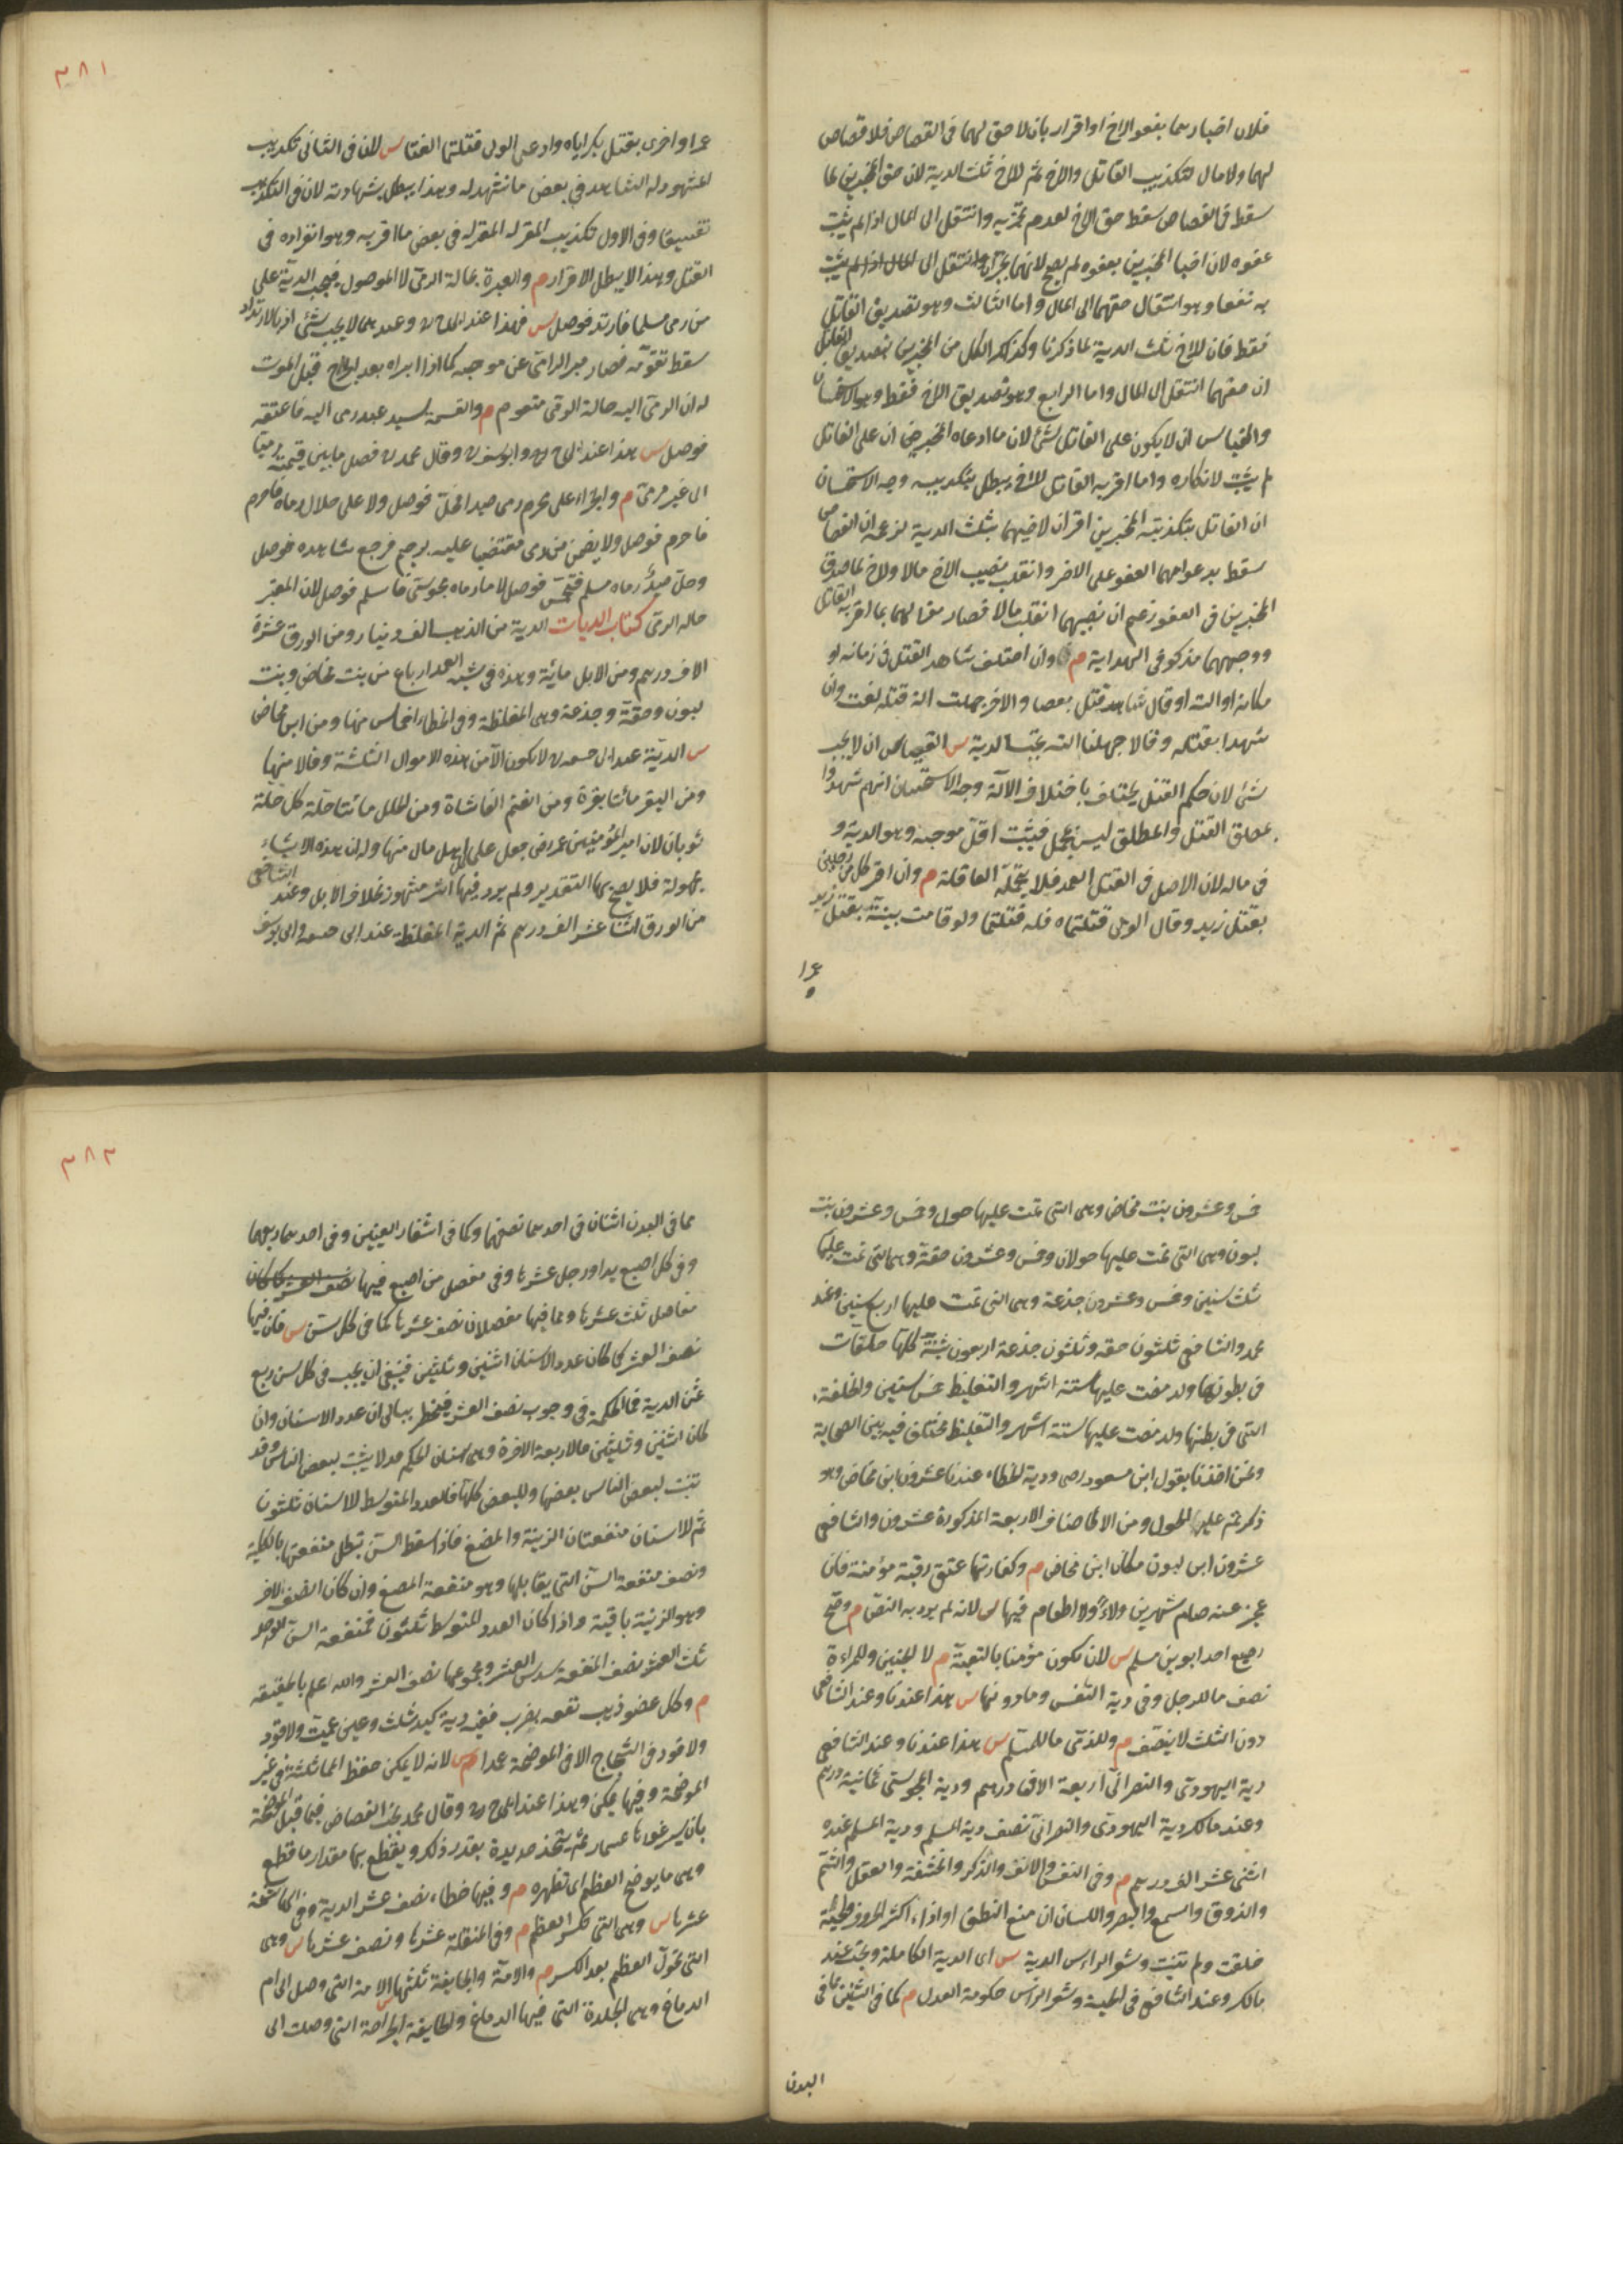 فلان اخبارهما بعفو الاخ او اقرار بان لا حق لهما فى القصاص فلا قصاص
لهما ولا مال لتكذيب القاتل والاخ ثم للاخ ثلث الدية لان حق المخبرين لما
سقط فى القصاص سقط حق الاخ لعدم تجزيه وانتقل الى المال اذا لم يثبت
عفوه لان اخبار المخبرين بعفوه لم يصح لانهما يجران وانتقل الى المال اذا لم يثبت
به نفعا وهو انتقال حقهما الى المال واما الثالث وهو تصديق القاتل
فقط فان للاخ ثلث الدية لما ذكرنا وكذلك لكل من المخبرين بتصديق القاتل
ان حقهما انتقل الى المال واما الرابع وهو تصديق الاخ فقط وهو الاستحسان
والقياس ان لا يكون على القاتل شئ لان ما ادعاه المخبران على القاتل
لم يثبت لانكاره واما اقر به القاتل للاخ يبطل بتكذيبه وجه الاستحسان
ان القاتل بتكذيبه المخبرين اقر ان لاخيهما بثلث الدية لزعمه ان القصاص
سقط بدعواهما العفو على الاخر وانقلب نصيب الاخ مالا والاخ لما صدق
المخبرين فى العفو زعم ان نصيبهما انقلب مالا فصار مقرا لهما بما اقر به القاتل
ووجههما مذكور فى الهداية م وان اختلف شاهد القتل فى زمانه او
مكانه او آلته او قال شاهد قتله بعصا والاخر جهلت آلة قتله لغت وان
شهدا بقتله وقالا جهلنا آلته تجب الدية س القياس ان لا يجب
شئ لان حكم القتل يختلف باختلاف الآلة وجه الاستحسان انهم شهدوا
بمطلق القتل والمطلق ليس بمجمل فيثبت اقل موجبه وهو الدية و
فى ماله لان الاصل فى القتل العمد فلا يتحمله العاقلة م وان اقر كل من رجلين
بقتل زيد وقال الولى قتلتماه فله قتلهما ولو قامت بينة بقتل زيد
عمرا
٣٨١
عمرا واخرى بقتل بكر اياه وادعى الولى قتلهما لغتا س لان فى الثانى تكذيب
المشهود له الشاهد فى بعض ما شهد له وهذا يبطل شهادته لان فى التكذيب
تفسيقا وفى الاول تكذيب المقر له المقر له فى بعض ما اقر به وهو انفراده فى
القتل وهذا لا يبطل الاقرار م والعبرة بحالة الرمى لا الموصول فيجب الدية على
من رمى مسلما فارتد فوصل س فهذا عند ابى ح ره وعندهما لا يجب شئ اذ بالارتداد
سقط تقومه فصار مبرا الرامى عن موجبه كما اذا ابراه بعد الجرح قبل الموت
له ان الرمى اليه حالة الرمى متقوم م والقيمة لسيد عبد رمى اليه فاعتقه
فوصل س هذا عند ابى ح ره وابى يوسف ره وقال محمد ره فضل ما بين قيمته مرميا
الى غير مرمى م والجزاء على محرم رمى صيدا فحل فوصل ولا على حلال رماه فاحرم
فاحرم فوصل ولا يضمن من رمى مقتضيا عليه برجم فرجع شاهده فوصل
وحل صيد رماه مسلم فتمجس فوصل لا ما رماه مجوسى فاسلم فوصل لان المعتبر
حالة الرمى كتاب الديات الدية من الذهب الف دينار ومن الورق عشرة
الاف درهم ومن الابل مائة وهذه فى شبه العمد ارباع من بنت مخاض وبنت
لبون وحقة وجذعة وهى المغلظة وفى الخطاء اخماس منها ومن ابن مخاض
س الدية عند ابى حنيفة ره لا يكون الا من هذه الاموال الثلثة وقالا منها
ومن البقر مائتا بقرة ومن الغنم الفا شاة ومن الحلل مائتا حلة كل حلة
ثوبان لان امير المؤمنين عمر رضى جعل على اهل كل مال منها وله ان هذه الاشياء
مجهولة فلا يصح بها التقدير ولم يرد فيها اثر مشهور بخلاف الابل وعند الشافعى
من الورق اثنا عشر الف درهم ثم الدية المغلظة عند ابى حنيفة وابى يوسف
خمس وعشرون بنت مخاض وهى التى تمت عليها حول وخمس وعشرون بنت
لبون وهى التى تمت عليها حولان وخمس وعشرون حقة وهى التى تمت عليها
ثلث سنين وخمس وعشرون جذعة وهى التى تمت عليها اربع سنين وعند
محمد والشافعى ثلثون حقة وثلثون جذعة اربعون ثنية كلها خلفات
فى بطونها ولد مضت عليها ستة اشهر والتغليظ خمس سنين والخلفة
التى فى بطنها ولد مضت عليها ستة اشهر والتغليظ مختلف فيه بين الصحابة
ونحن اخذنا بقول ابن مسعود رضى ودية الخطاء عندنا عشرون ابن مخاض وهو
ذكر تم عليه الحول ومن الاصناف الاربعة المذكورة عشرون والشافعى
عشرون ابن لبون مكان ابن مخاض م وكفارتهما عتق رقبة مؤمنة فان
عجز عنه صام شهرين ولاء ولا اطعام فيها س لانه لم يرد به النص م وصح
رضيع احد ابويه مسلم س لان يكون مؤمنا بالتبعية م لا الجنين وللمراءة
نصف ما للرجل وفى دية النفس وما دونها س هذا عندنا وعند الشافعى
دون الثلث لا ينصف م وللذمى ما للمسلم س هذا عندنا وعند الشافعى
دية اليهودى والنصرانى اربعة الاف درهم ودية المجوسى ثمانية درهم
وعند مالك دية اليهودى والنصرانى نصف دية المسلم ودية المسلم عنده
اثنى عشر الف درهم م وفى النفس والانف والذكر والحشفة والعقل والشم
والذوق والسمع والبصر واللسان ان منع النطق او اداء اكثر الحروف ولحية
حلقت ولم تنبت وشعر الراس الدية س اى الدية الكاملة وتجب عند
مالك وعند الشافعى فى اللحية وشعر الراس حكومة العدل م كما فى اثنين مما فى
البدن
٣٨٢
مما فى البدن اثنان فى احدهما نصفها وكما فى اشفار العينين وفى احدهما ربعها
وفى كل اصبع يد او رجل عشرها وفى مفصل من اصبع فيها
مفاصل ثلث عشرها ومما فيها مفصلان نصف عشرها كما فى كل سن س فان فيها
نصف العشر كما كان عدد الاسنان اثنين وثلثين فينبغى ان يجب فى كل سن ربع
ثمن الدية فما الحكمة فى وجوب نصف العشر فيخطر ببالى ان عدد الاسنان وان
كان اثنين وثلثين فالاربعة الاخرة وهى اسنان الحكم قد لا يثبت لبعض الناس وقد
تنبت لبعض الناس بعضها وللبعض كلها فالعدد المتوسط للاسنان ثلثون
ثم للاسنان منفعتان الزينة والمضغ فاذا سقط السن تبطل منفعتها بالكلية
ونصف منفعة السن التى يقابلها وهو منفعة المضغ وان كان النصف الاخر
وهو الزينة باقية واذا كان العدد المتوسط ثلثون فمنفعة السن الواحد
ثلث العشر ونصف المنفعة سدس العشر ومجموعها نصف العشر والله اعلم بالحقيقة
م وكل عضو ذهب نفعه بضرب ففيه دية كيد شلت وعين عميت ولا قود
ولا قود فى الشجاج الا فى الموضحة عمدا س لانه لا يمكن حفظ المماثلة فى غير
الموضحة وفيها يمكن وهذا عند ابى ح ره وقال محمد يجب القصاص فيما قبل الموضحة
بان يسبر غورها بمسمار ثم يتخذ حديدة بقدر ذلك ويقطع بها مقدار ما قطع
وهى ما يوضح العظم اى تظهره م وفيها خطاء نصف عشر الدية وفى الهاشمة
عشرها س وهى التى تكسر العظم م وفى المنقلة عشرها ونصف عشرها س وهى
التى تحول العظم بعد الكسر م والآمة والجايفة ثلثها س الآمة التى وصل الى ام
الدماغ وهى الجلدة التى فيها الدماغ والجايفة الجراحة التى وصلت الى